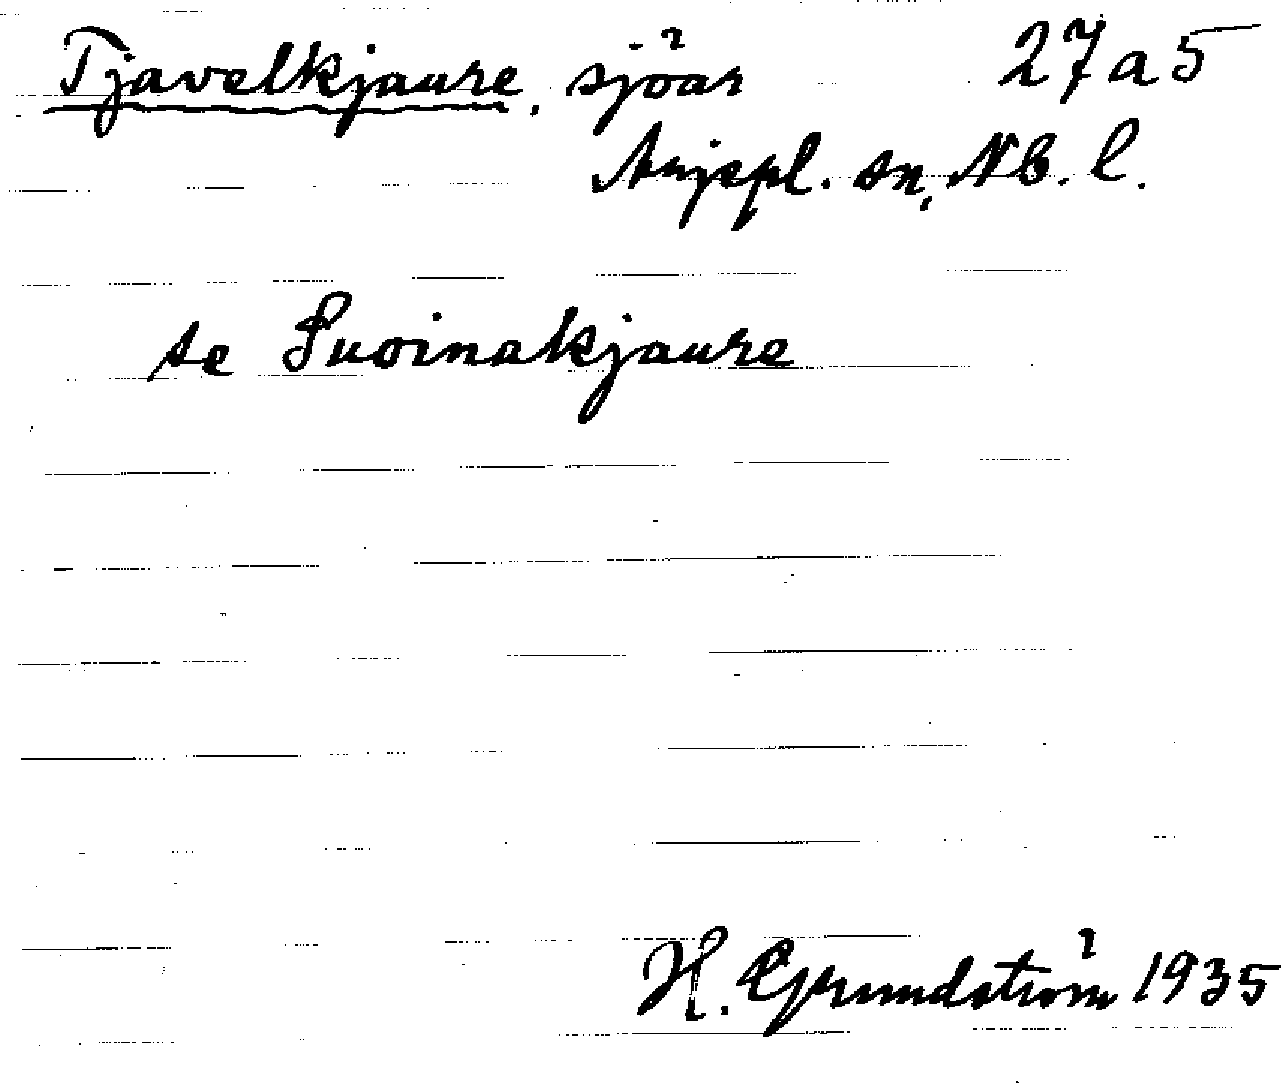 Tjavelkjaure, sjöar 27a5
Arjepl. sn, Nb. l.
se Suoinakjaure
H. Grundström 1935